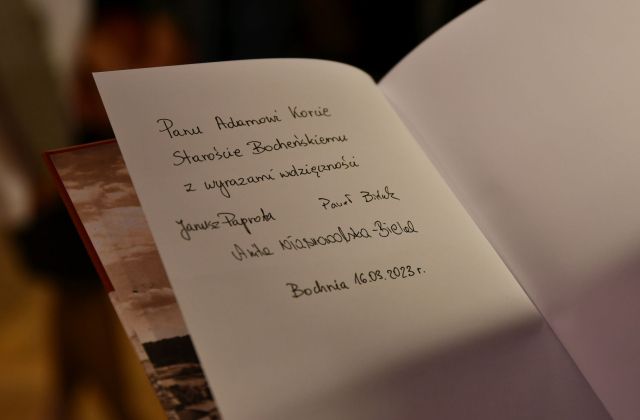 Panu Adamowi Korcie
Staroście Bocheńskiemu
z wyrazami wdzięczności
Janusz Paprota Paweł
-Bielel
Bochnia 16.03.2023 r.